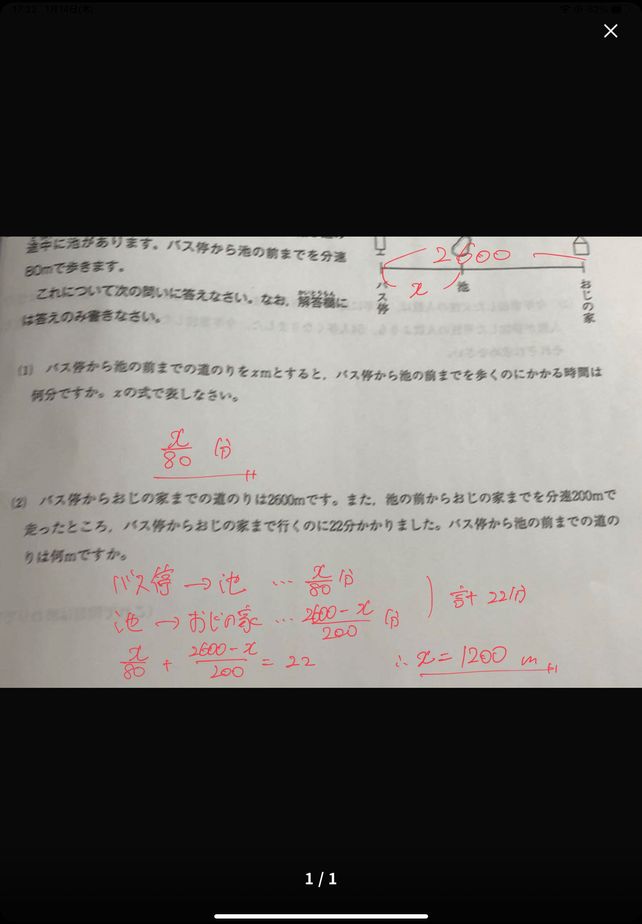 途中に池があります。バス停から池の前までを分速
2600
80mで歩きます。
x
バス停
池
おじの家
これについて次の問いに答えなさい。なお、解答欄に
かいとうらん
は答えのみ書きなさい。
(1) バス停から池の前までの道のりをxmとすると、バス停から池の前までを歩くのにかかる時間は
何分ですか。xの式で表しなさい。
x/80 分
(2) バス停からおじの家までの道のりは2600mです。また、池の前からおじの家までを分速200mで
走ったところ、バス停からおじの家まで行くのに22分かかりました。バス停から池の前までの道の
りは何mですか。
バス停 → 池 … x/80 分
池 → おじの家 … 2600-x/200 分
) 計 22分
x/80 + 2600-x/200 = 22
∴ x = 1200 m
1 / 1